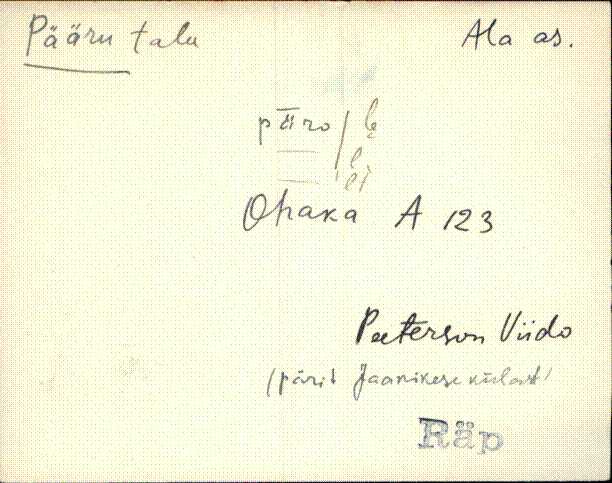 Pääru talu Ala as.
pǟro / le
l
ei
Ohaka A 123
Peeterson Viido
(pärit Jaanikese külast)
Räp